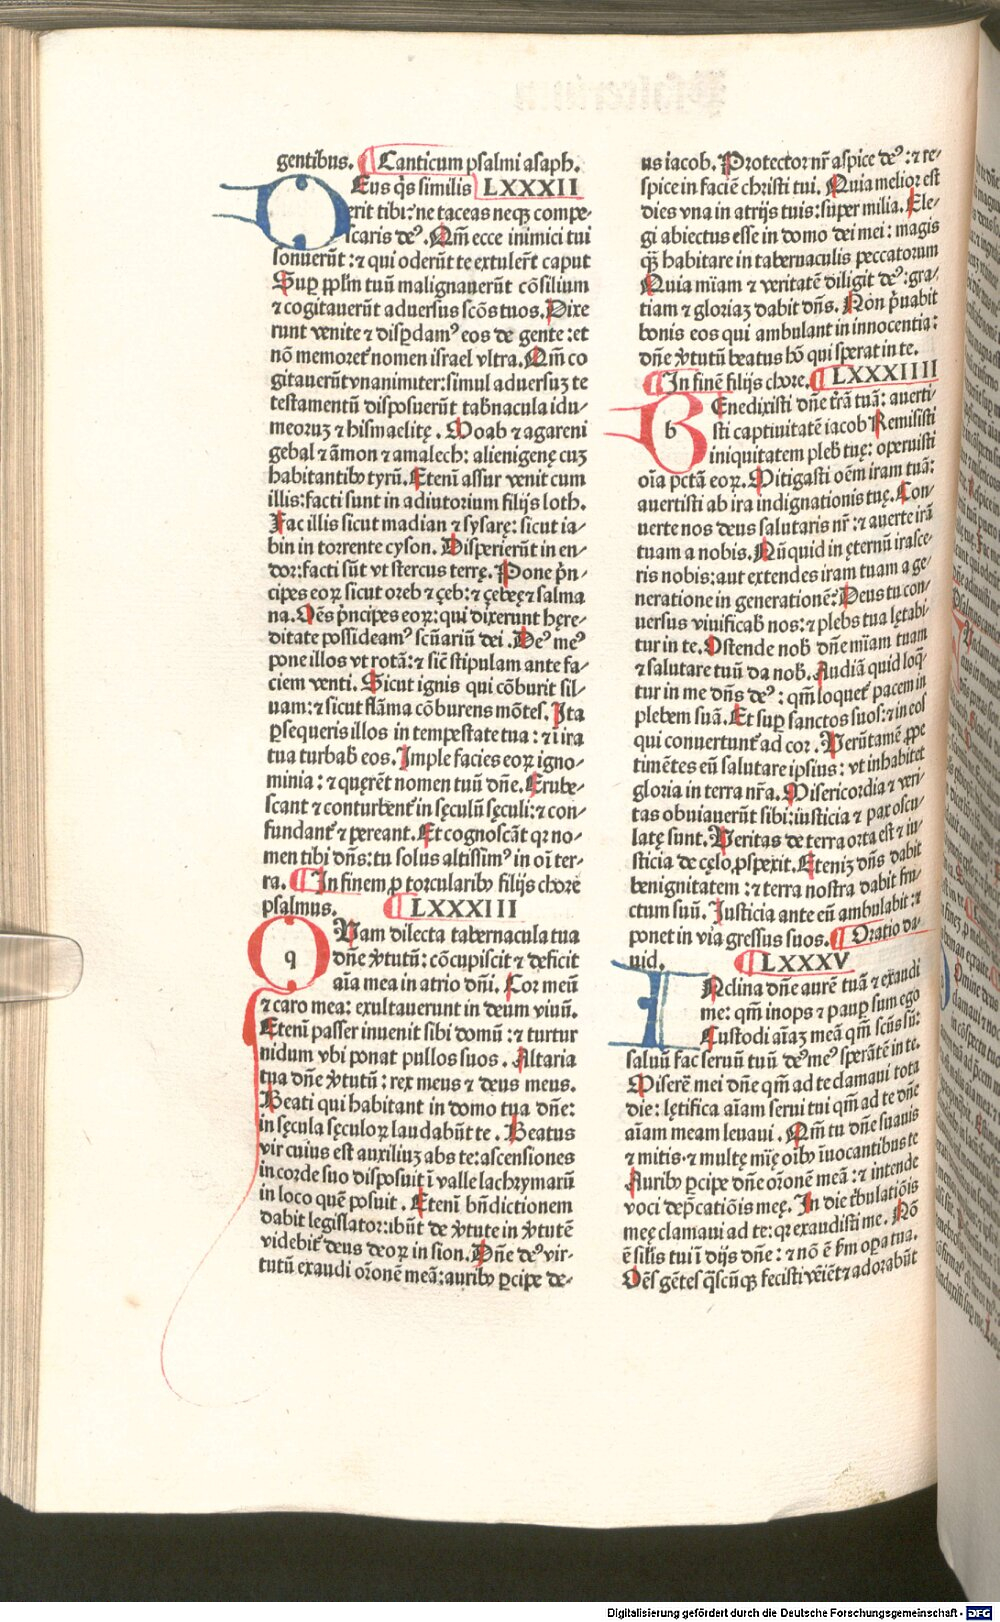 gentibus. Canticum psalmi asaph.
Deus q̇s similis LXXXII
erit tibi: ne taceas neqꝫ compe-
scaris deꝰ. Qm̃ ecce inimici tui
sonuerũt: ⁊ qui oderũt te extulerũt caput
Suꝑ ꝓplm̃ tuũ malignauerũt cõsilium
⁊ cogitauerũt aduersus scõs tuos. Dixe
runt venite ⁊ disꝑdamꝰ eos de gente: et
nõ memoretˀ nomen israel vltra. Qm̃ co
gitauerũt vnanimiter: simul aduersuꝫ te
testamentũ disposuerũt tab̃nacula idu-
meoruꝫ ⁊ hismaelitę. Moab ⁊ agareni
gebal ⁊ ãmon ⁊ amalech: alienigenę cuꝫ
habitantibꝰ tyrũ. Etenĩ assur venit cum
illis: facti sunt in adiutorium filijs loth.
Fac illis sicut madian ⁊ sysarę: sicut ia-
bin in torrente cyson. Disperierũt in en-
dor: facti sũt vt stercus terrę. Pone p̃n-
cipes eoꝝ sicut oreb ⁊ çeb: ⁊ çebeę ⁊ salma
na. Oẽs p̃ncipes eoꝝ: qui dixerunt hęre-
ditate possideamꝰ scñariũ dei. Deꝰ meꝰ
pone illos vt rotã: ⁊ sic̃ stipulam ante fa-
ciem venti. Sicut ignis qui cõburit sil-
uam: ⁊ sicut flãma cõburens mõtes. Ita
ꝑsequeris illos in tempestate tua: ⁊ ĩ ira
tua turbab̃ eos. Imple facies eoꝝ igno-
minia: ⁊ quęrẽt nomen tuũ dñe. Erube-
scant ⁊ conturbentˀ in sęculũ sęculi: ⁊ con-
fundantˀ ⁊ pereant. Et cognoscãt qꝛ no-
men tibi dñs: tu solus altissimꝰ in oĩ ter-
ra. In finem ꝓ torcularibꝰ filijs chore
psalmus. LXXXIII
q Vam dilecta tabernacula tua
dñe v̓tutũ: cõcupiscit ⁊ deficit
aĩa mea in atrio dñi. Cor meũ
⁊ caro mea: exultauerunt in deum viuũ.
Etenĩ passer inuenit sibi domũ: ⁊ turtur
nidum vbi ponat pullos suos. Altaria
tua dñe v̓tutũ: rex meus ⁊ deus meus.
Beati qui habitant in domo tua dñe:
in sęcula sęculoꝝ laudabũt te. Beatus
vir cuius est auxiliuꝫ abs te: ascensiones
in corde suo disposuit ĩ valle lachrymarũ
in loco quẽ posuit. Etenĩ bñdictionem
dabit legislator: ibũt de v̓tute in v̓tutẽ
videbitˀ deus deoꝝ in sion. Dñe deꝰ vir-
tutũ exaudi oꝛonẽ meã: auribꝰ ꝑcipe de-
us iacob. Protector nr̃ aspice deꝰ: ⁊ re-
spice in faciẽ christi tui. Quia melior est
dies vna in atrijs tuis: super milia. Ele-
gi abiectus esse in domo dei mei: magis
q̃ habitare in tabernaculis peccatorum
Quia mĩam ⁊ veritatẽ diligit deꝰ: gra-
tiam ⁊ gloriaꝫ dabit dñs. Non p̃uabit
bonis eos qui ambulant in innocentia:
dñe v̓tutũ beatus hõ qui sperat in te.
In finẽ filijs chore. LXXXIIII
b Enedixisti dñe tr̃ã tuã: auerti-
sti captiuitatẽ iacob Remisisti
iniquitatem pleb̃ tuę: operuisti
oĩa pctã eoꝝ. Mitigasti oẽm iram tuã:
auertisti ab ira indignationis tuę. Con-
uerte nos deus salutaris nr̃: ⁊ auerte irã
tuam a nobis. Nũquid in ęternũ irasce-
ris nobis: aut extendes iram tuam a ge-
neratione in generationẽ: Deus tu con-
uersus viuificab̃ nos: ⁊ plebs tua lętabi-
tur in te. Ostende nob̃ dñe mĩam tuam
⁊ salutare tuũ da nob̃. Audiã quid loq̃-
tur in me dñs deꝰ: qm̃ loquetˀ pacem in
plebem suã. Et suꝑ sanctos suos: ⁊ in eos
qui conuertuntˀ ad cor. Verũtamẽ ꝓpe
timẽtes eũ salutare ipsius: vt inhabitet
gloria in terra nr̃a. Misericordia ⁊ veri-
tas obuiauerũt sibi: iusticia ⁊ pax oscu-
latę sunt. Veritas de terra orta est ⁊ iu-
sticia de cęlo ꝓspexit. Eteniꝫ dñs dabit
benignitatem: ⁊ terra nostra dabit fru-
ctum suũ. Iusticia ante eũ ambulabit: ⁊
ponet in via gressus suos. Oratio da-
uid. LXXXV
INclina dñe aurẽ tuã ⁊ exaudi
me: qm̃ inops ⁊ pauꝑ sum ego
Custodi aĩaꝫ meã qm̃ scũs sũ:
saluũ fac seruũ tuũ deꝰ meꝰ sperãtẽ in te.
Miserẽ mei dñe qm̃ ad te clamaui tota
die: lętifica aĩam serui tui qm̃ ad te dñe
aĩam meam leuaui. Qm̃ tu dñe suauis
⁊ mitis: ⁊ multę mĩę oĩbꝰ ĩuocantibus te
Auribꝰ ꝑcipe dñe oꝛonẽ meã: ⁊ intende
voci dep̃catiõis meę. In die tribulatiõis
meę clamaui ad te: qꝛ exaudisti me. Nõ
ẽ silis tui ĩ dijs dñe: ⁊ nõ ẽ s̃m oꝑa tua.
Oẽs gẽtes q̃scũqꝫ fecisti vẽiẽt ⁊ adorabũt
Digitalisierung gefördert durch die Deutsche Forschungsgemeinschaft - DFG